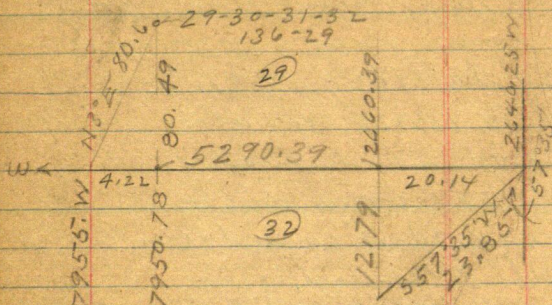 29-30-31-32
136-29
N3°E 80.6
80.49
29
12660.39
2640.25 W
W
5290.39
4.22
20.14
7955.W
7950.78
32
12.79
S57°35'W
23.85